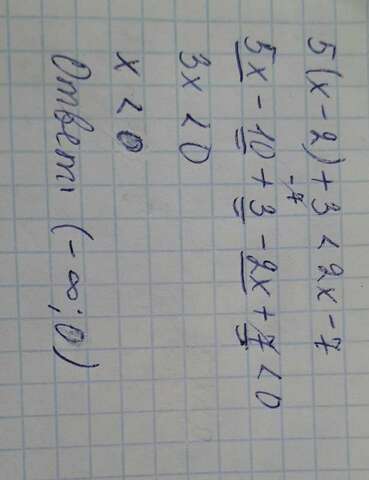 5(x-2)+3<2x-7
5x-10+3-2x+7<0
-7
3x<0
x<0
Ответ: (-∞;0)